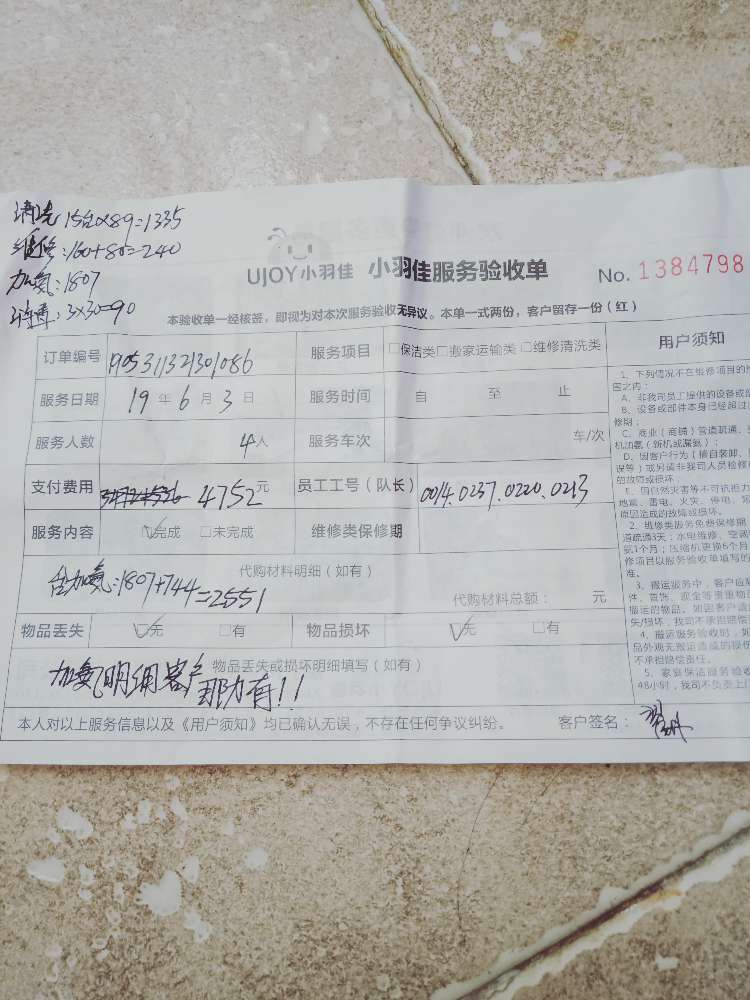 清洗15台×89=1335
维修:160+80=240
加氟:1807
3×30=90
UJOY小羽佳 小羽佳服务验收单 No. 1384798
本验收单一经核签，即视为对本次服务验收无异议。本单一式两份，客户留存一份（红）
订单编号 190531132301086 服务项目 □保洁类□搬家运输类□维修清洗类
服务日期 19年6月3日 服务时间 自 至 止
服务人数 4人 服务车次 车/次
支付费用 4752元 员工工号（队长） 0014.0237.0220.0213
服务内容 ☑完成 □未完成 维修类保修期
代购材料明细（如有）
含加氟:1807+744=2551
代购材料总额： 元
物品丢失 ☑无 □有 物品损坏 ☑无 □有
物品丢失或损坏明细填写（如有）
加氟明细客户那有!!
本人对以上服务信息以及《用户须知》均已确认无误，不存在任何争议纠纷。 客户签名：
用户须知
1、下列情况不在维修项目的
围之内：
A、非我司员工提供的设备或
B、设备或部件本身已经超过
修期；
C、商业（商铺）管道疏通、
机加氟（新机或漏氟）；
D、因客户行为（擅自装卸、
误等）或另请非我司人员检修
的故障或损坏
E、因自然灾害等不可抗拒力
地震、雷电、火灾、停电、
原因造成的故障或损坏。
2、维修类服务免费保修期
道疏通3天；水电维修、空调
氟1个月；压缩机更换6个月
修项目以服务验收单填写的
准。
3、搬运服务中，客户应
件、首饰、现金等贵重物品
搬运的物品。如因客户
失/损坏，我司不承担赔偿
4、搬运服务验收时，如
品外观无搬运造成的损伤
不承担赔偿责任。
5、家庭保洁服务验收
48小时，我司不负责上